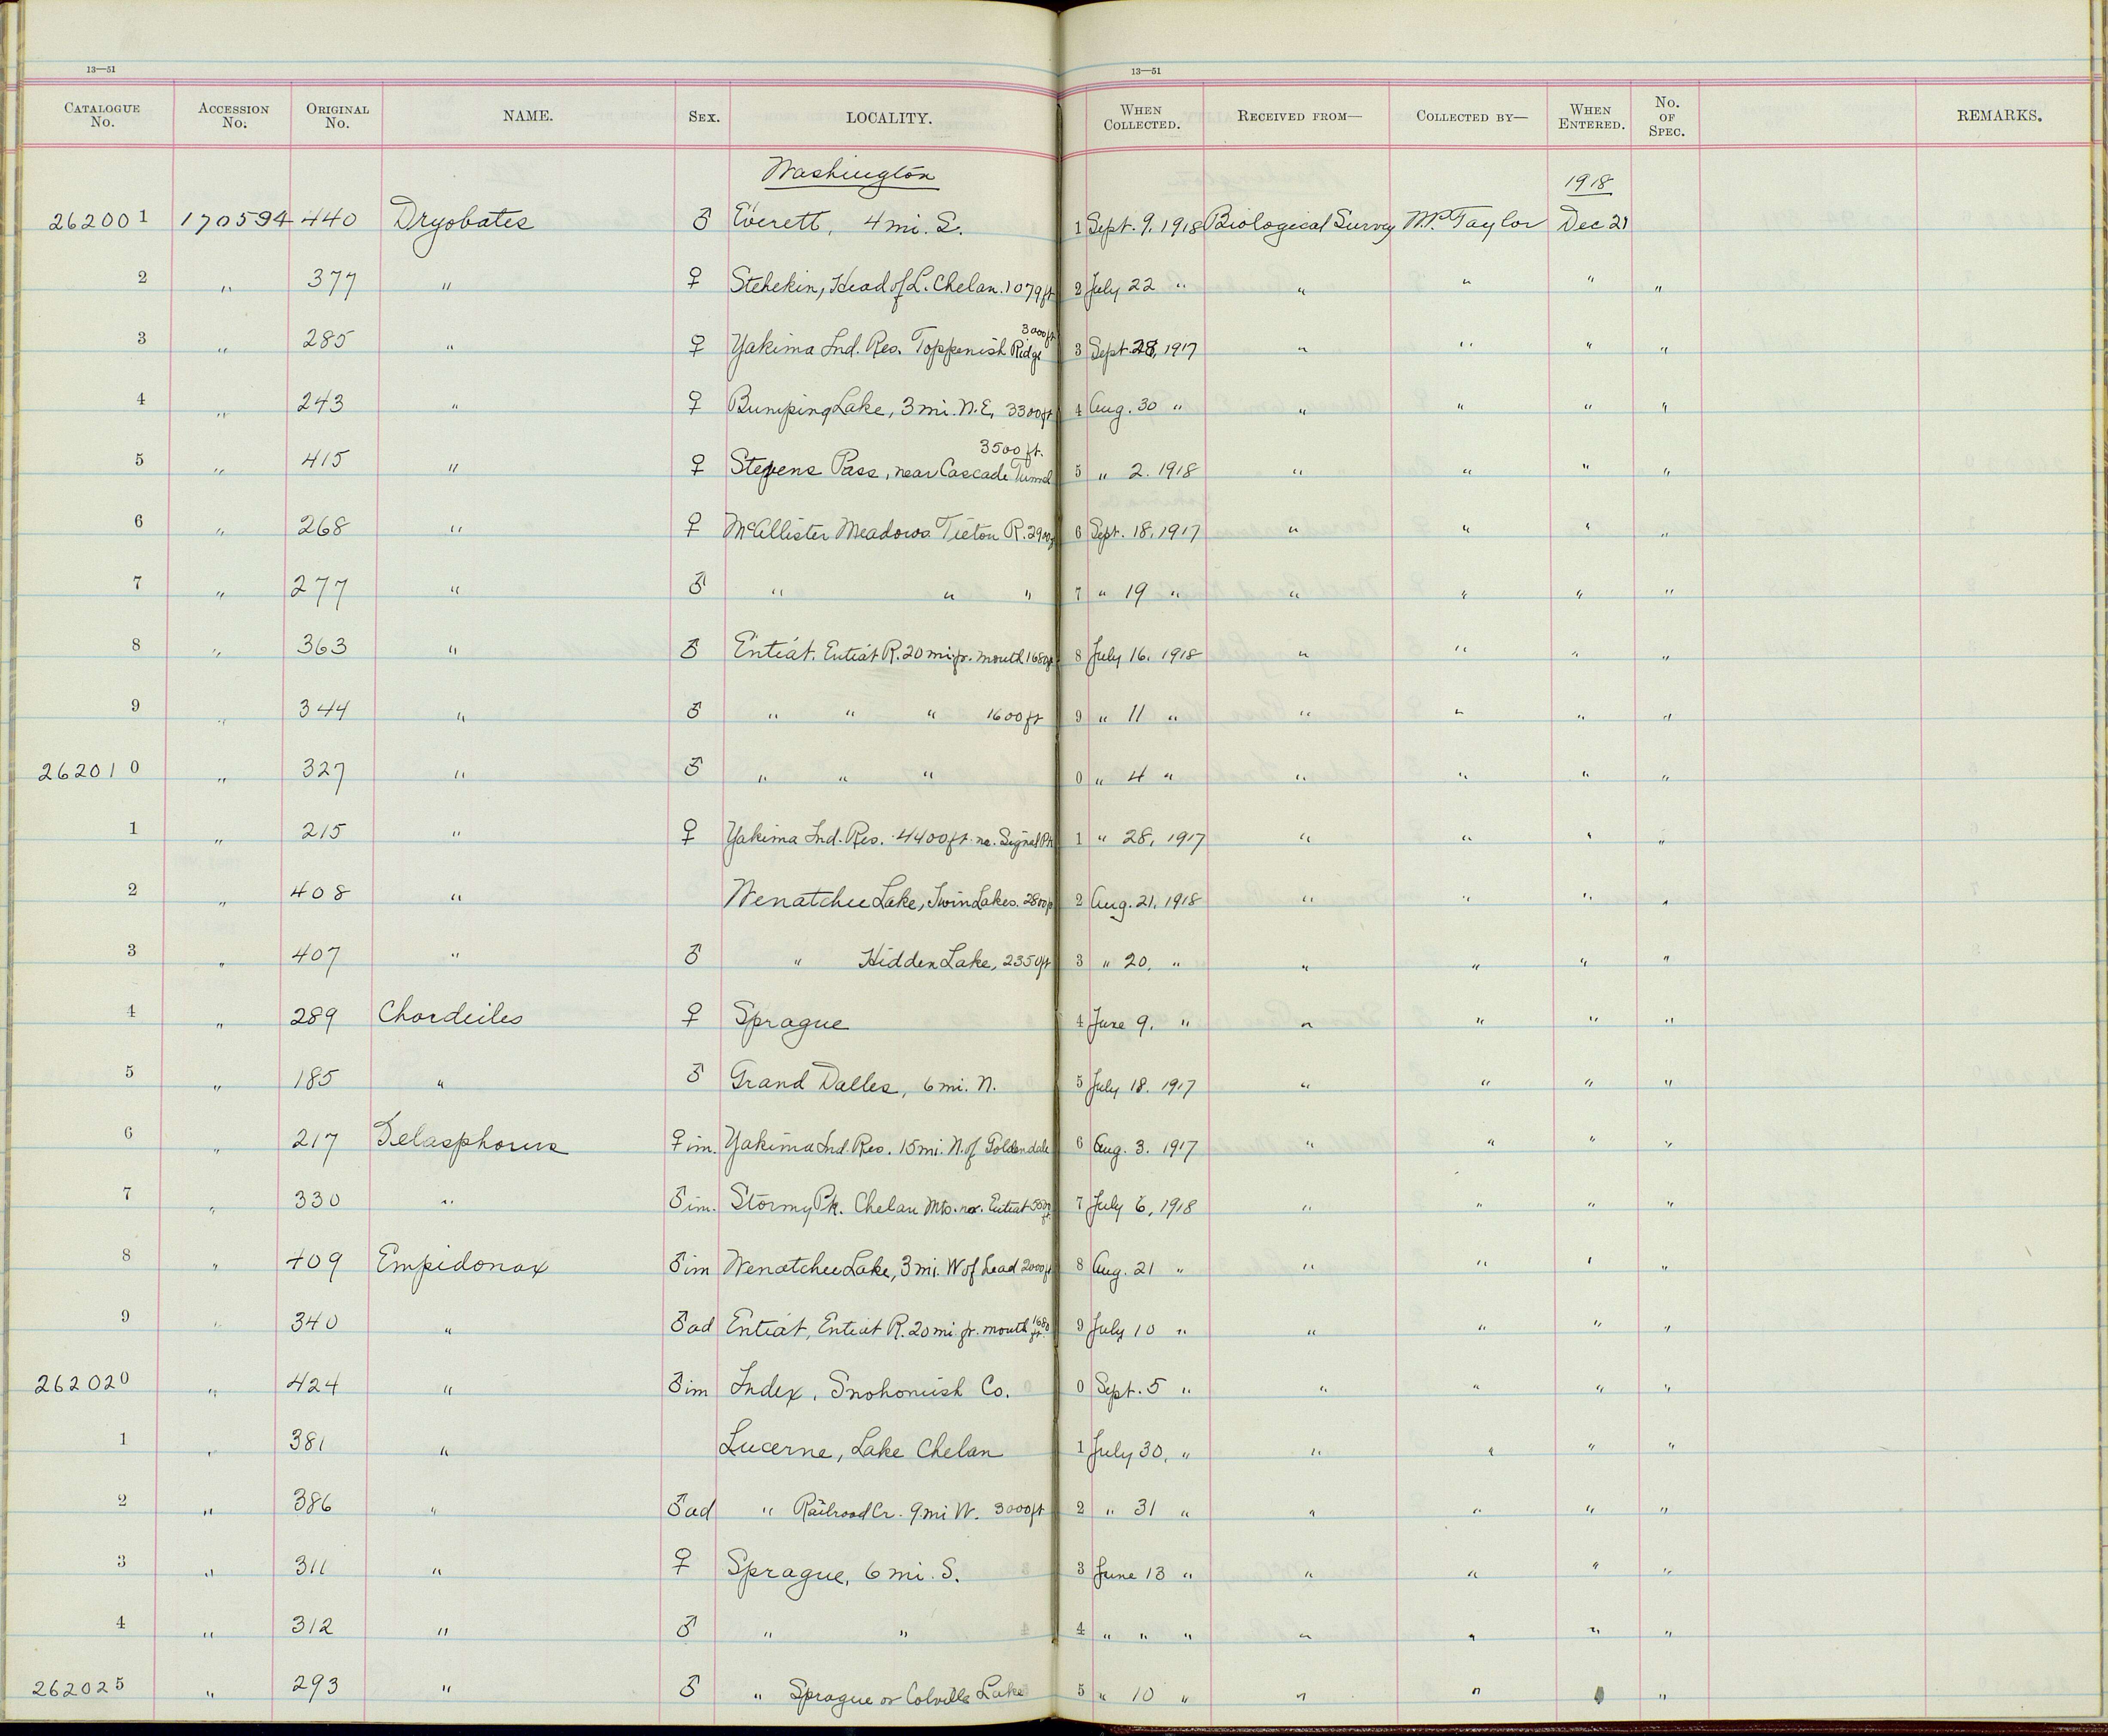 13—51 13—51
CATALOGUE No. ACCESSION No. ORIGINAL No. NAME. SEX. LOCALITY. WHEN COLLECTED. RECEIVED FROM— COLLECTED BY— WHEN ENTERED. No. OF SPEC. REMARKS.
Washington 1918
262001 170594 440 Dryobates ♂ Everett, 4 mi. S. 1 Sept. 9. 1918 Biological Survey W.P. Taylor Dec 21
2 " 377 " ♀ Stehekin, Head of L. Chelan. 1079 ft 2 July 22 " " " " "
3 " 285 " ♀ Yakima Ind. Res. Toppenish Ridge 3000 ft 3 Sept. 28, 1917 " " " "
4 " 243 " ♀ Bumping Lake, 3 mi. N.E, 3300 ft 4 Aug. 30 " " " " "
5 " 415 " ♀ Stevens Pass, near Cascade Tunnel 3500 ft. 5 " 2. 1918 " " " "
6 " 268 " ♀ McAllister Meadows Tieton R. 2900 6 Sept. 18, 1917 " " " "
7 " 277 " ♂ " " " 7 " 19 " " " " "
8 " 363 " ♂ Entiat. Entiat R. 20 mi. fr. mouth 1680 ft 8 July 16. 1918 " " " "
9 " 344 " ♂ " " " 1600 ft 9 " 11 " " " " "
262010 " 327 " ♂ " " " 0 " 4 " " " " "
1 " 215 " ♀ Yakima Ind. Res. 4400 ft. nr. Signal Pk 1 " 28, 1917 " " " "
2 " 408 " Wenatchee Lake, Twin Lakes. 2800 ft 2 Aug. 21. 1918 " " " "
3 " 407 " ♂ " Hidden Lake, 2350 ft 3 " 20. " " " " "
4 " 289 Chordeiles ♀ Sprague 4 June 9. " " " " "
5 " 185 " ♂ Grand Dalles, 6 mi. N. 5 July 18. 1917 " " " "
6 " 217 Selasphorus ♀ im. Yakima Ind. Res. 15 mi. N. of Goldendale 6 Aug. 3. 1917 " " " "
7 " 330 " ♂ im. Stormy Pk. Chelan Mts. nr. Entiat 7 July 6, 1918 " " " "
8 " 409 Empidonax ♂ im Wenatchee Lake, 3 mi. W of head 2000 ft 8 Aug. 21 " " " " "
9 " 340 " ♂ ad Entiat, Entiat R. 20 mi. fr. mouth 1680 ft 9 July 10 " " " " "
262020 " 424 " ♂ im Index, Snohomish Co. 0 Sept. 5 " " " " "
1 " 381 " Lucerne, Lake Chelan 1 July 30, " " " " "
2 " 386 " ♂ ad " Railroad Cr. 9 mi W. 3000 ft 2 " 31 " " " " "
3 " 311 " ♀ Sprague, 6 mi. S. 3 June 13 " " " " "
4 " 312 " ♂ " " 4 " " " " " " "
262025 " 293 " ♂ " Sprague or Colville Lake 5 " 10 " " " "